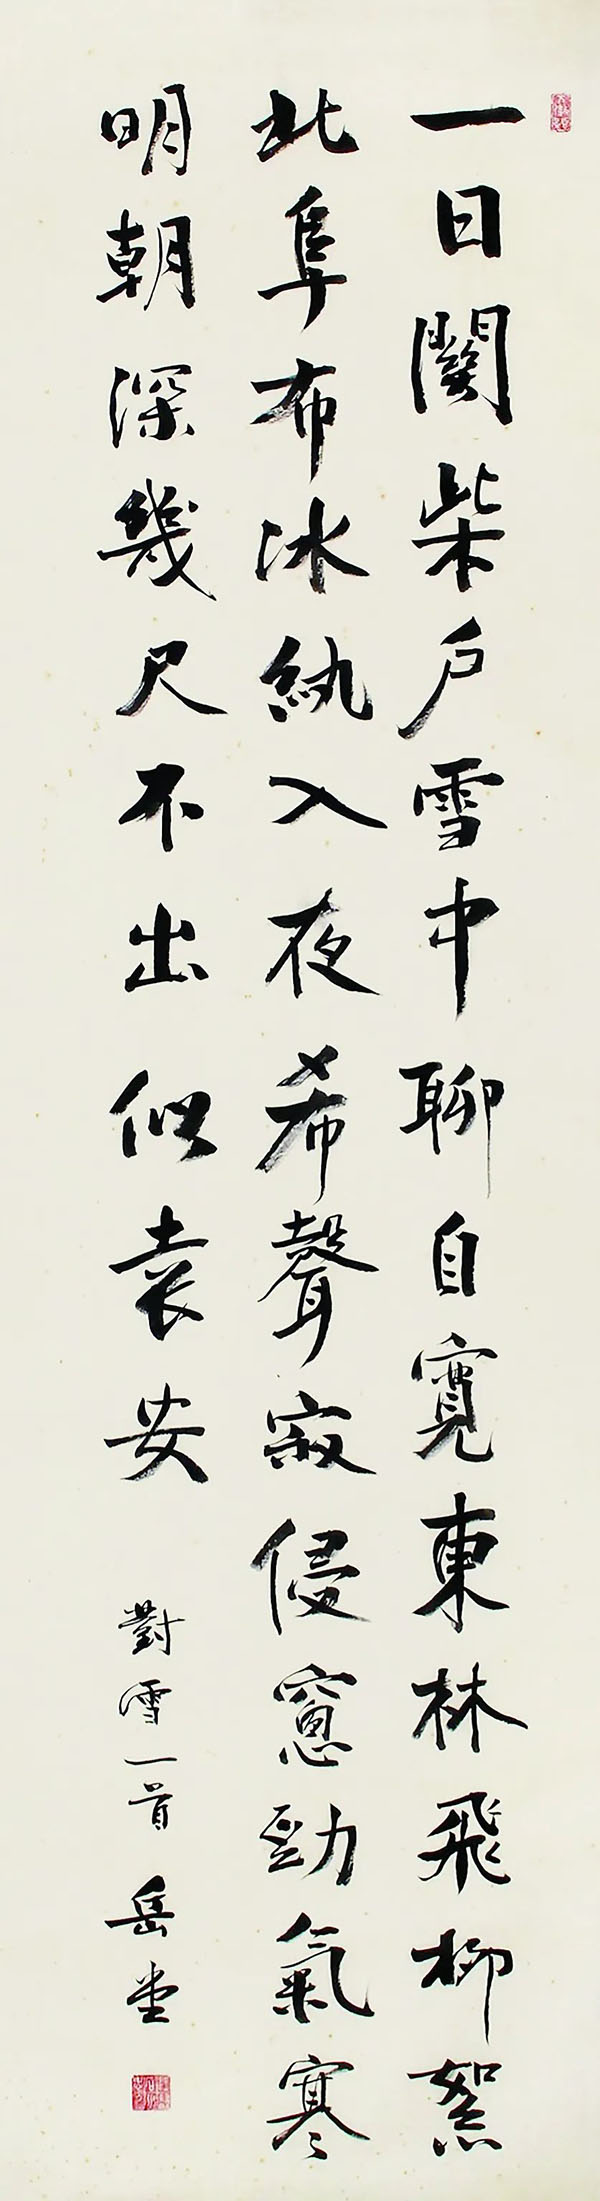 一日關柴戶雪中聊自寬東林飛柳絮
北阜布冰紈入夜希聲寂侵窻勁氣寒
明朝深幾尺不出似袁安
對雪一首 岳堂